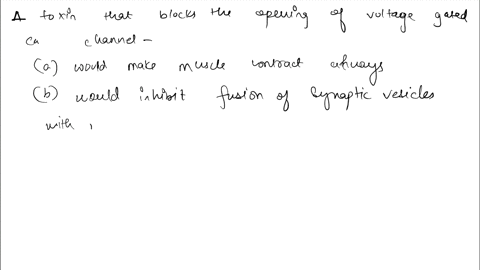 A toxin that blocks the opening of voltage gated
ca channel -
(a) would make muscle contract always
(b) would inhibit fusion of synaptic vesicles
with